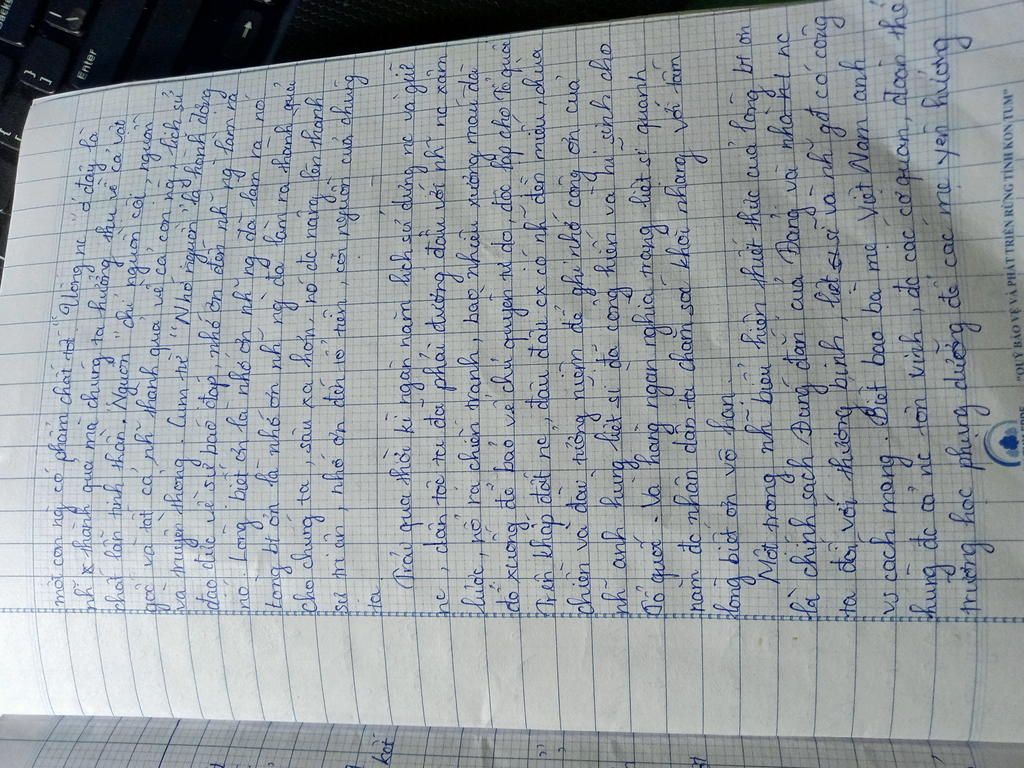 một con ng có phẩm chất tố. "Uống nc" ở đây là
nh x thành quả mà chúng ta hưởng thụ về cả vật
chất lẫn tinh thần. "Nguồn" chỉ nguồn cội, nguồn
gốc và tất cả nh thành quả về cả con ng, lịch sử
và truyền thống. Cụm từ "Nhớ nguồn" là hành động
đạo đức về sự báo đáp, nhớ ơn đến nh ng làm ra
nó. Lòng biết ơn là nhớ ơn nh ng đã làm ra nó
Lòng bt ơn là nhớ ơn nh ng đã làm ra thành quả
cho chúng ta, sâu xa hơn, nó đc nâng lên thành
sự tri ân, nhớ ơn đến tổ tiên, cội nguồn của chúng
ta
Trải qua thời kì ngàn năm lịch sử dựng nc và giữ
nc, dân tộc ta đã phải đương đầu với nh nc xâm
lược, nổ ra chiến tranh, bao nhiêu xương máu đã
đổ xuống để bảo vệ chủ quyền tự do, độc lập cho Tổ quốc
Trên khắp đất nc, đâu đâu cx có nh đền miếu, chùa
chiền và đài tưởng niệm để ghi nhớ công ơn của
nh anh hùng liệt sĩ đã cống hiến và hi sinh cho
Tổ quốc. Và hàng ngàn nghĩa trang liệt sĩ quanh
năm đc nhân dân ta chăm sóc khói nhang với tấm
lòng biết ơn vô hạn.
Một trong nh biểu hiện thiết thực của lòng bt ơn
là chính sách đúng đắn của Đảng và nhà nc
ta đối với thương binh, liệt sĩ và nh gđ có công
vs cách mạng. Biết bao bà mẹ Việt Nam anh
hùng đc cả nc tôn vinh, đc các cơ quan, đoàn thể
trường học phụng dưỡng để các mẹ yên hưởng
"QUỸ BẢO VỆ VÀ PHÁT TRIỂN RỪNG TỈNH KON TUM"
Enter